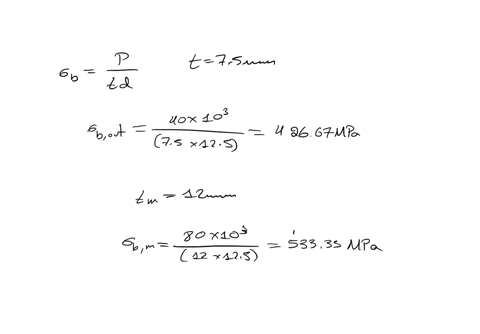 σb = P / td    t = 7.5mm
σb,out = 40 x 10³ / (7.5 x 12.5) = 426.67 MPa
tm = 12mm
σb,m = 80 x 10³ / (12 x 12.5) = 533.33 MPa